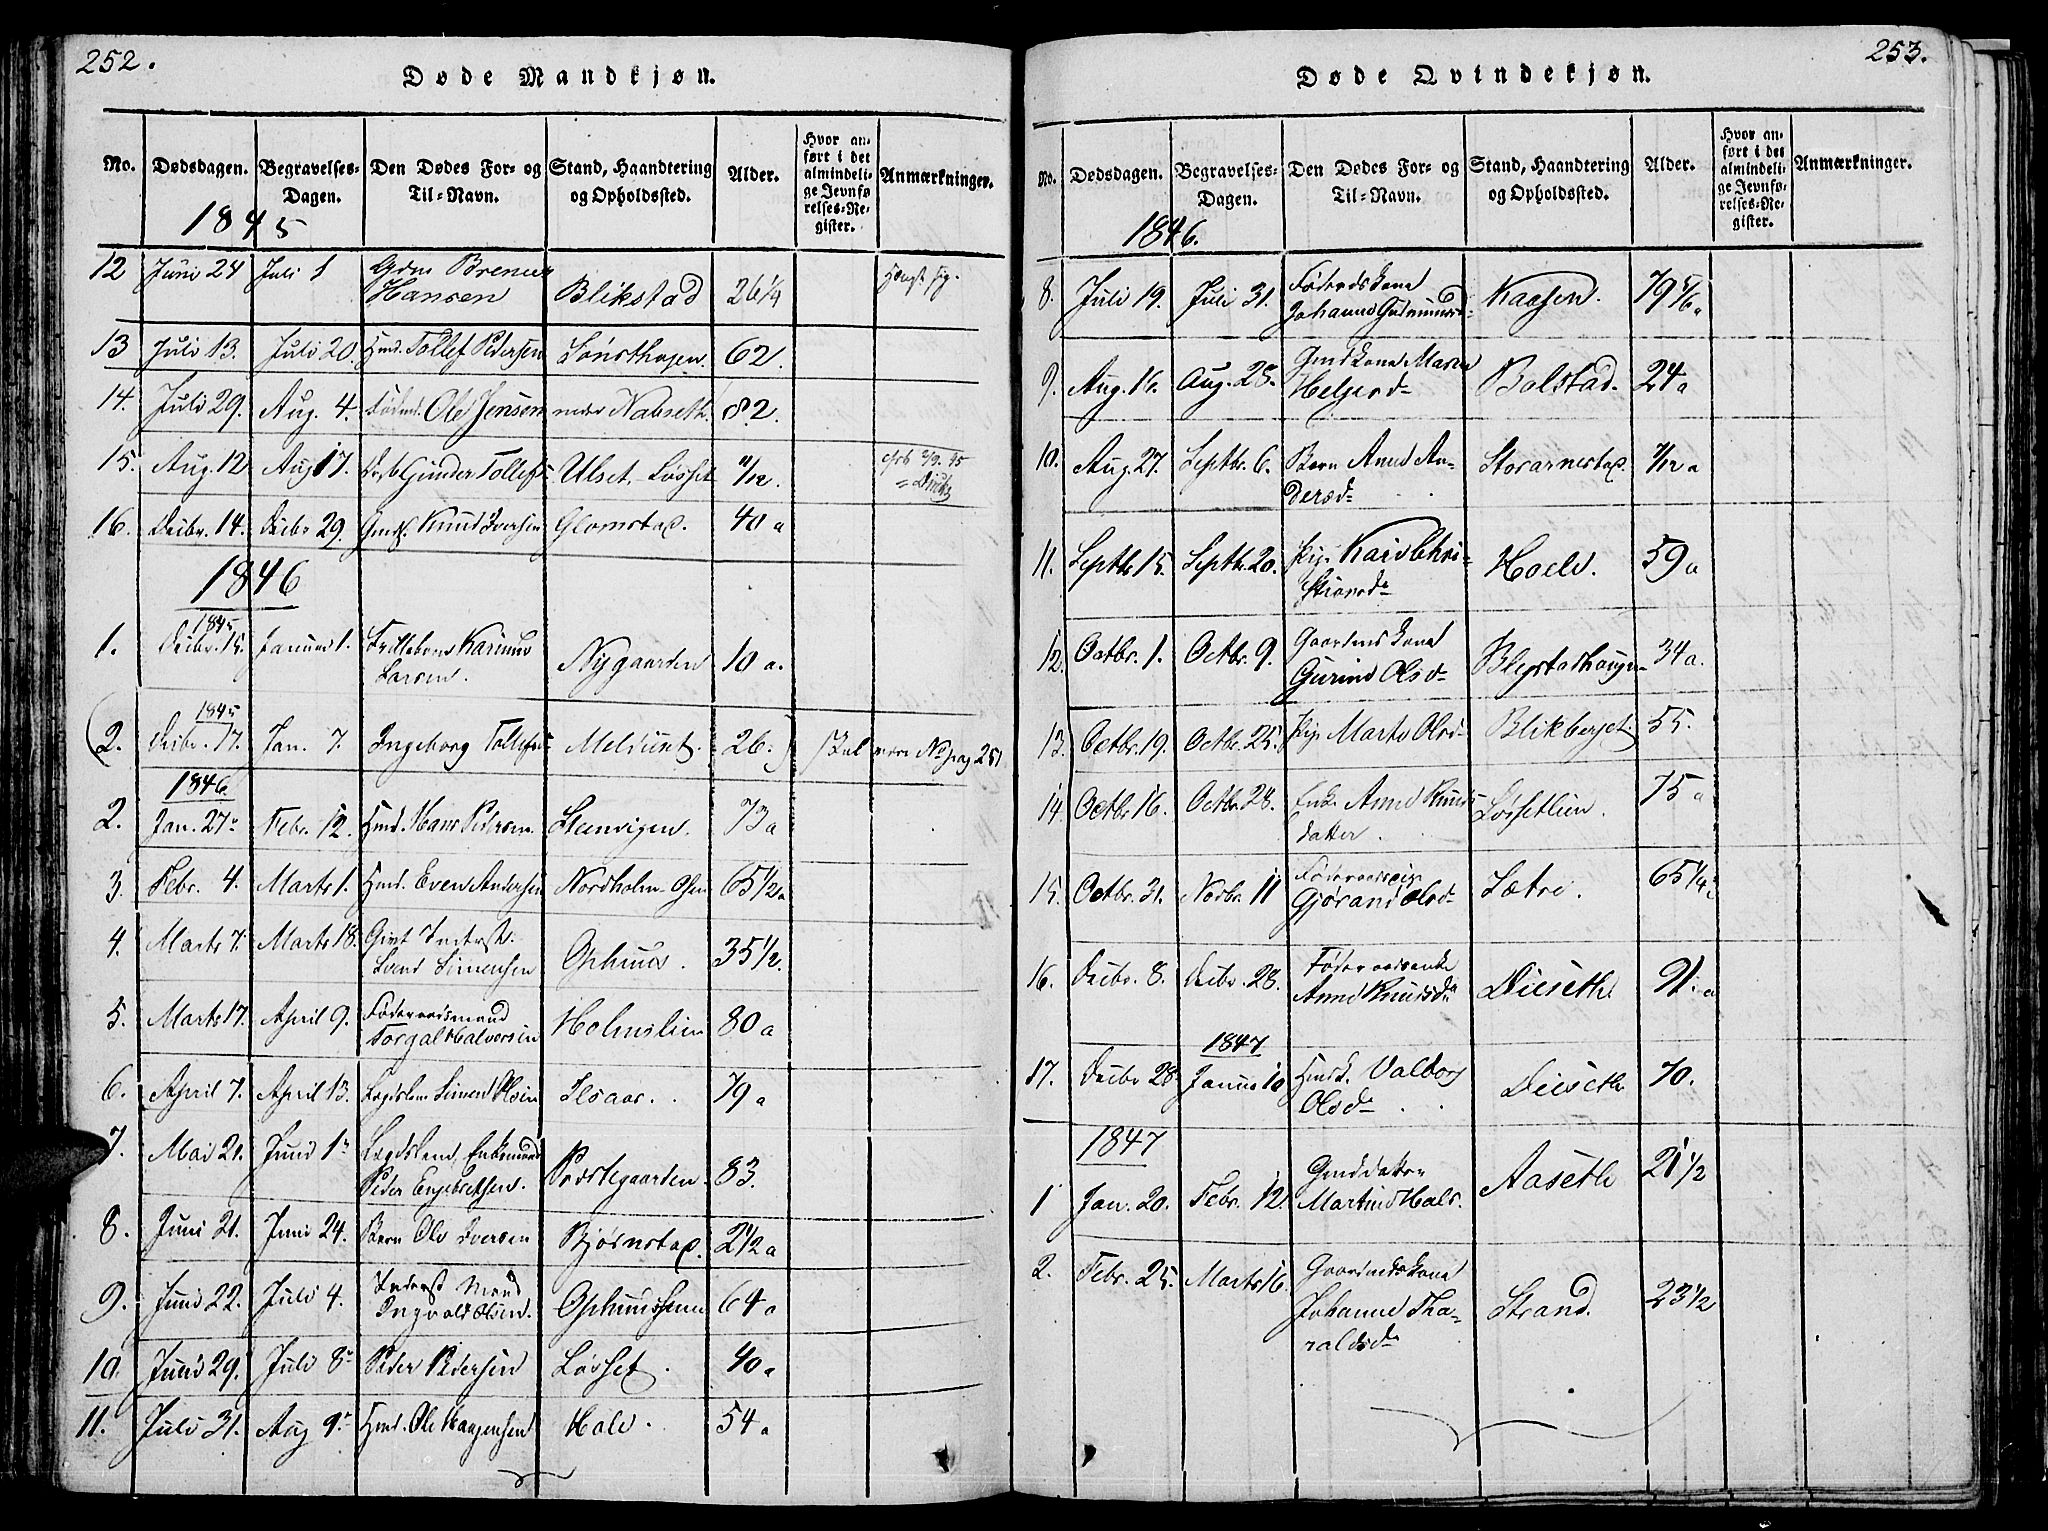 252.
Døde Mandkjøn.
No. Dødsdagen. Begravelses-Dagen. Den Dødes For- og Til-Navn. Stand, Haandtering og Opholdssted. Alder. Hvor anført i det almindelige Jevnførelses-Register. Anmærkninger.
1845
12 Juni 24 Juli 1 Hansen Blikstad 26 1/4
13 Juli 13. Juli 20. Hmd. Tollef Pedersen 62.
14. Juli 29. Aug. 4. Ole Jensen 82.
15. Aug. 12 Aug 17. Gunder Tollefs Ulset, Løsset 11/12.
16. Decbr. 14. Decbr 29. Gmd. Knud Iversen Glomstad. 40 a
1846
1845
1. Decbr. 15. Januar 1.
Larsen. Nygaarden 10 a.
1845
(2. Decbr. 17. Jan. 7. Ingeborg Tollefsd Melsunt. 26.) Skal være No pag 251
1846.
2. Jan. 27 Febr. 12. Hmd. Hans Pedersen Steenvigen. 73 a
3. Febr. 4. Marts 1. Hmd. Even Andersen Nordholm-Osen 65 1/2 a
4. Marts 7. Marts 18. Givt Inderst.
Simensen Ophuus. 35 1/2.
5. Marts 17. April 9. Føderaadsmand
Torgal Halvorsen Holmslien 80 a
6. April 7. April 13. Lægdslem Simen Olsen 79 a
7. Mai 21. Juni 1 Lægdslem, Enkemand
Peder Engebretsen. Præstegaarden. 83.
8. Juni 21. Juni 24. Barn Ole Iversen Bjørnstad. 2 1/2 a
9. Juni 22. Juli 4. Inderst Mand
Ingvald Olsen. Ophuus 64 a
10. Juni 29. Juli 8 Peder Pedersen Løsset. 40 a
11. Juli 31. Aug 9 Hmd. Ole Haagensen Hole. 54 a
253.
Døde Qvindekjøn.
No. Dødsdagen. Begravelses-Dagen. Den Dødes For- og Til-Navn. Stand, Haandtering og Opholdssted. Alder. Hvor anført i det almindelige Jevnførelses-Register. Anmærkninger.
1846.
8. Juli 19. Juli 31. Føderaadskone
Johanne Gudmundsd Kaasen. 79 5/6 a
9. Aug. 16. Aug. 28. Gmdkone Maren
Helgesd Bolstad. 24 a
10. Aug. 27. Septbr. 6. Barn Anne An-
dersd Storarnestad 7/12 a
11. Septbr 15. Septbr. 20. Pig. Kari Chri-
stiansd Hoele. 59 a
12. Octbr. 1. Octbr. 9. Gaardmdskone
Gurine Olsd Blegstadhaugen 34 a.
13. Octbr. 19. Octbr. 25. Pig. Marte Olsd Blikberget. 55.
14. Octbr 16. Octbr. 28. Enke Anne Knuds-
datter. Løssetlien. 75 a
15. Octbr. 31. Novbr. 11 Føderaadspige
Gjørand Olsd Sætre. 65 1/4 a
16. Decbr. 8. Decbr. 28. Føderaadsenke
Anne Knudsd Dieseth 91. a
1847
17. Decbr 28. Januar 10 Hmdk. Valborg
Olsd Dieseth 70.
1847
1 Jan. 20. Febr. 12. Gmddatter
Martine Hals. Aaseth 21 1/2
2. Febr. 25. Marts 16. Gaardmdskone
Johanne Tha-
raldsd Strand. 23 1/2